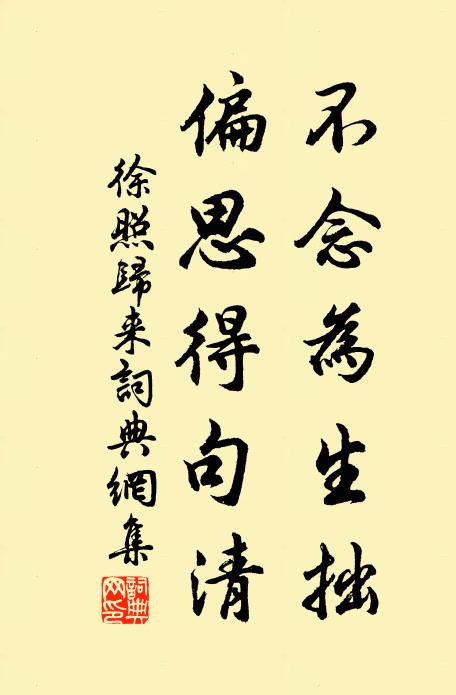 不念為生拙
偏思得句清
徐照歸来詞典網集
詞典網印